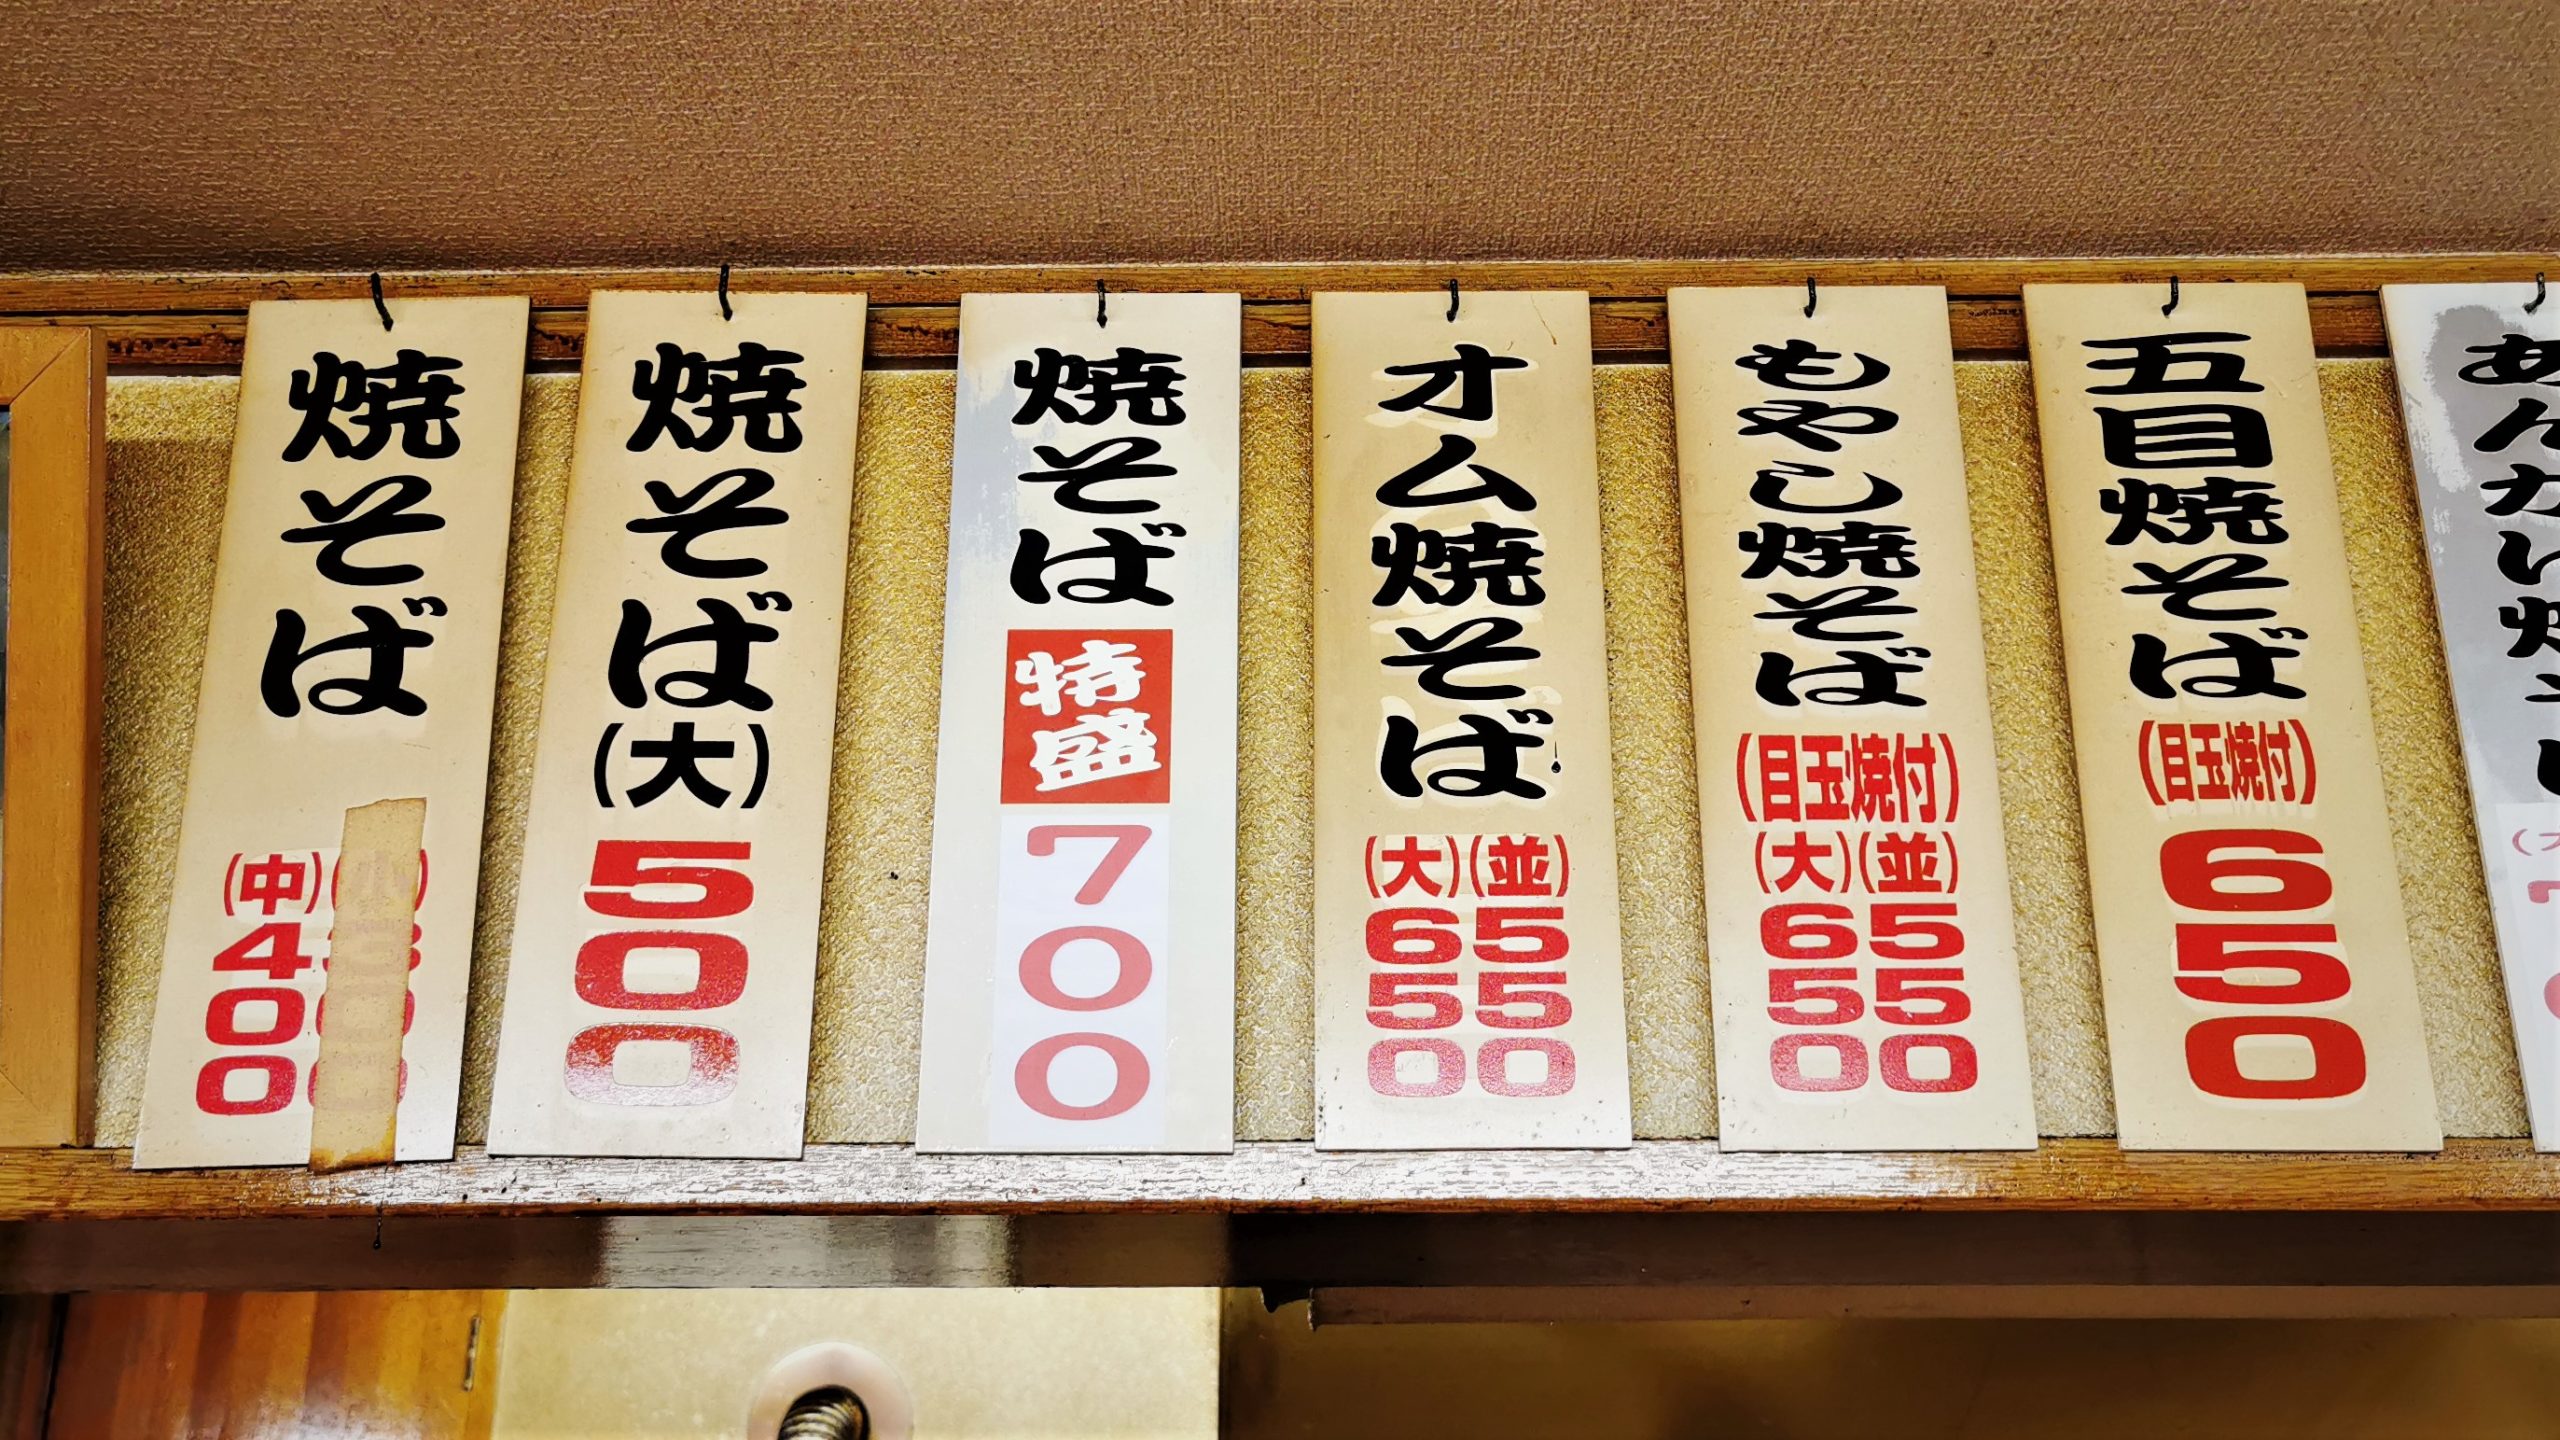 焼そば
(小)300
(中)400
焼そば(大)
500
焼そば
特盛
700
オム焼そば
(並)550
(大)650
もやし焼そば
(目玉焼付)
(並)550
(大)650
五目焼そば
(目玉焼付)
650
あんかけ焼